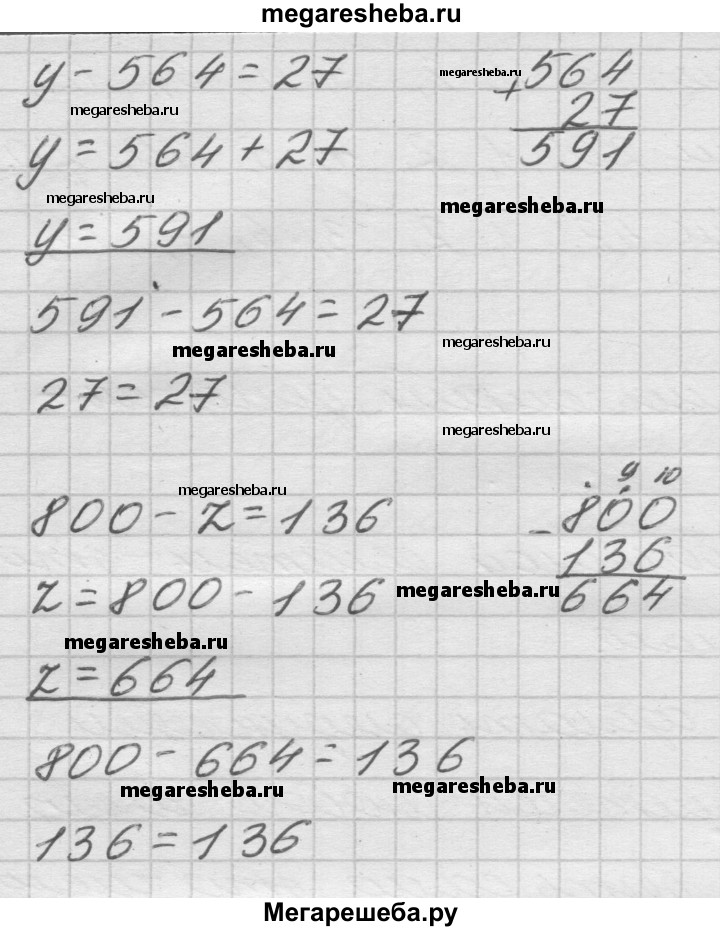 megaresheba.ru
y - 564 = 27
megaresheba.ru
+ 564
27
591
megaresheba.ru
y = 564 + 27
megaresheba.ru
megaresheba.ru
y = 591
591 - 564 = 27
megaresheba.ru
megaresheba.ru
27 = 27
megaresheba.ru
megaresheba.ru
800 - z = 136
9 10
- 800
136
664
z = 800 - 136
megaresheba.ru
megaresheba.ru
z = 664
800 - 664 = 136
megaresheba.ru
megaresheba.ru
136 = 136
Мегарешеба.ру